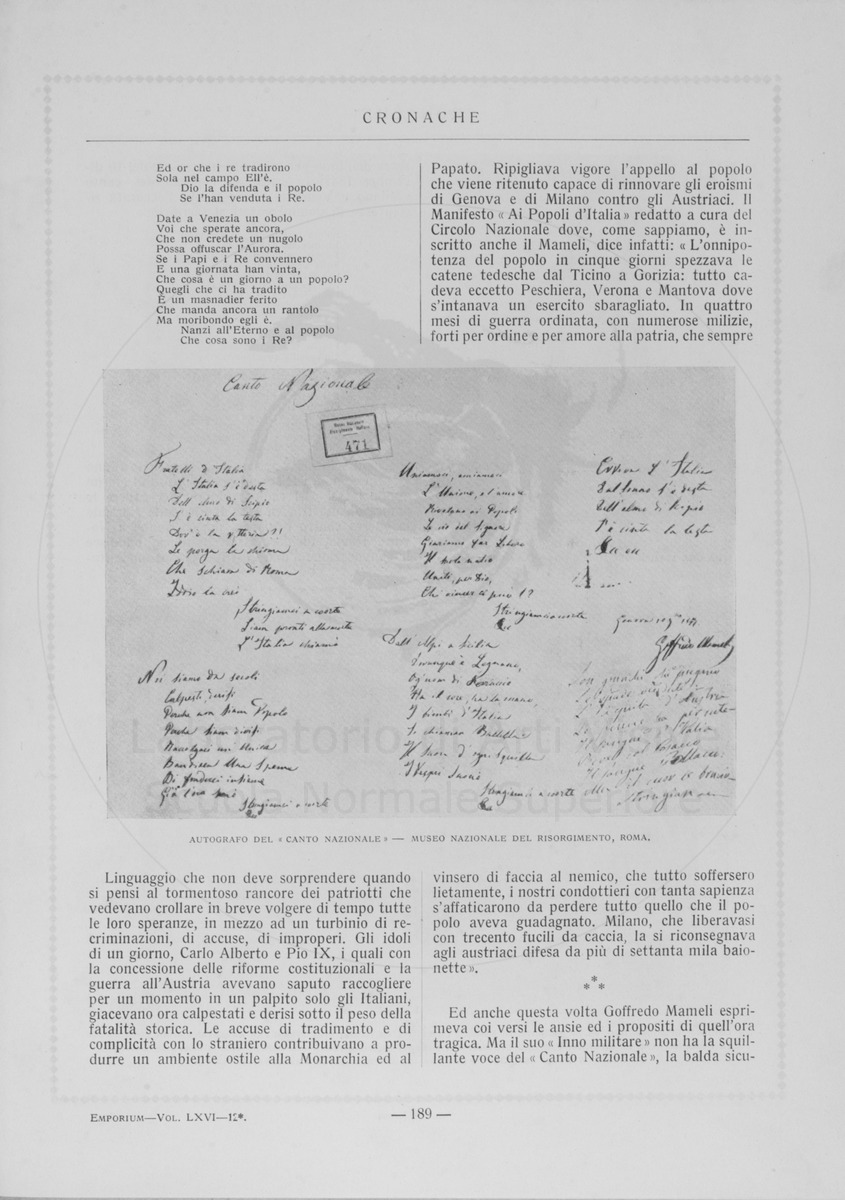 CRONACHE
Ed or che i re tradirono
Sola nel campo Ell'è.
Dio la difenda e il popolo
Se l'han venduta i Re.
Date a Venezia un obolo
Voi che sperate ancora,
Che non credete un nugolo
Possa offuscar l'Aurora.
Se i Papi e i Re convennero
E una giornata han vinta,
Che cosa è un giorno a un popolo?
Quegli che ci ha tradito
È un masnadier ferito
Che manda ancora un rantolo
Ma moribondo egli è.
Nanzi all'Eterno e al popolo
Che cosa sono i Re?
Papato. Ripigliava vigore l'appello al popolo
che viene ritenuto capace di rinnovare gli eroismi
di Genova e di Milano contro gli Austriaci. Il
Manifesto « Ai Popoli d'Italia » redatto a cura del
Circolo Nazionale dove, come sappiamo, è in-
scritto anche il Mameli, dice infatti: « L'onnipo-
tenza del popolo in cinque giorni spezzava le
catene tedesche dal Ticino a Gorizia: tutto ca-
deva eccetto Peschiera, Verona e Mantova dove
s'intanava un esercito sbaragliato. In quattro
mesi di guerra ordinata, con numerose milizie,
forti per ordine e per amore alla patria, che sempre
Canto Nazionale
471
Fratelli d'Italia
L'Italia s'è desta
Dell'elmo di Scipio
S'è cinta la testa
Dov'è la vittoria?!
Le porga la chioma
Che schiava di Roma
Iddio la creò
Stringiamci a coorte
Siam pronti alla morte
L'Italia chiamò
Noi siamo da secoli
Calpesti, derisi
Perché non siam Popolo
Perché siam divisi
Raccolgaci un'Unica
Bandiera Una Speme
Di fonderci insieme
Già l'ora suonò
Stringiamci a coorte
Uniamoci, amiamoci
L'Unione, e l'amore
Rivelano ai Popoli
Le vie del Signore
Giuriamo far Libero
Il suolo natio
Uniti, per Dio,
Chi vincer ci può!?
Stringiamci a coorte
Dall'Alpi a Sicilia
Dovunque è Legnano,
Ogn'uom di Ferruccio
Ha il core, ha la mano,
I bimbi d'Italia
Si chiaman Balilla
Il suon d'ogni squilla
I Vespri suonò
Stringiamci a coorte
Evviva l'Italia
Dal sonno s'è desta
Dell'elmo di Scipio
S'è cinta la testa
Goffredo Mameli
AUTOGRAFO DEL « CANTO NAZIONALE » — MUSEO NAZIONALE DEL RISORGIMENTO, ROMA.
Linguaggio che non deve sorprendere quando
si pensi al tormentoso rancore dei patriotti che
vedevano crollare in breve volgere di tempo tutte
le loro speranze, in mezzo ad un turbinio di re-
criminazioni, di accuse, di improperi. Gli idoli
di un giorno, Carlo Alberto e Pio IX, i quali con
la concessione delle riforme costituzionali e la
guerra all'Austria avevano saputo raccogliere
per un momento in un palpito solo gli Italiani,
giacevano ora calpestati e derisi sotto il peso della
fatalità storica. Le accuse di tradimento e di
complicità con lo straniero contribuivano a pro-
durre un ambiente ostile alla Monarchia ed al
vinsero di faccia al nemico, che tutto soffersero
lietamente, i nostri condottieri con tanta sapienza
s'affaticarono da perdere tutto quello che il po-
polo aveva guadagnato. Milano, che liberavasi
con trecento fucili da caccia, la si riconsegnava
agli austriaci difesa da più di settanta mila baio-
nette ».
* * *
Ed anche questa volta Goffredo Mameli espri-
meva coi versi le ansie ed i propositi di quell'ora
tragica. Ma il suo « Inno militare » non ha la squil-
lante voce del « Canto Nazionale », la balda sicu-
EMPORIUM—VOL. LXVI—12*.
— 189 —